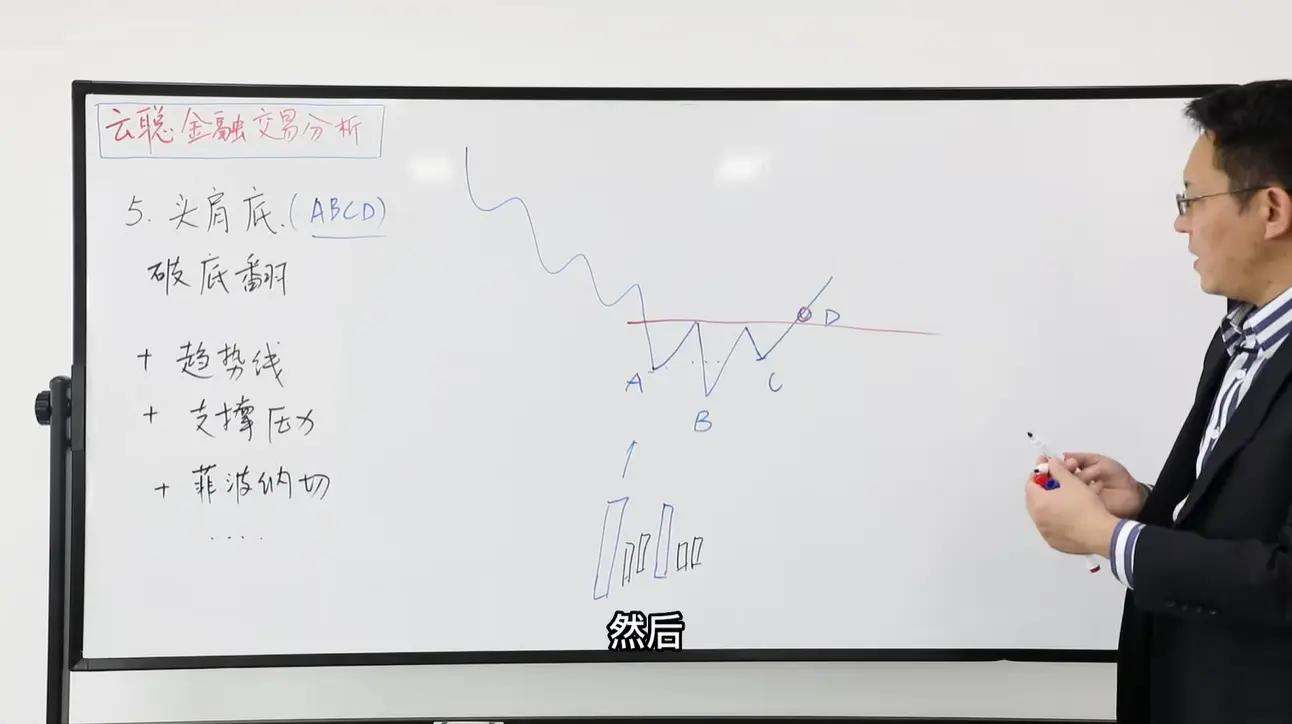 云聪金融交易分析
5. 头肩底.(ABCD)
破底翻
+ 趋势线
+ 支撑压力
+ 菲波纳切
....
D
A
C
B
然后